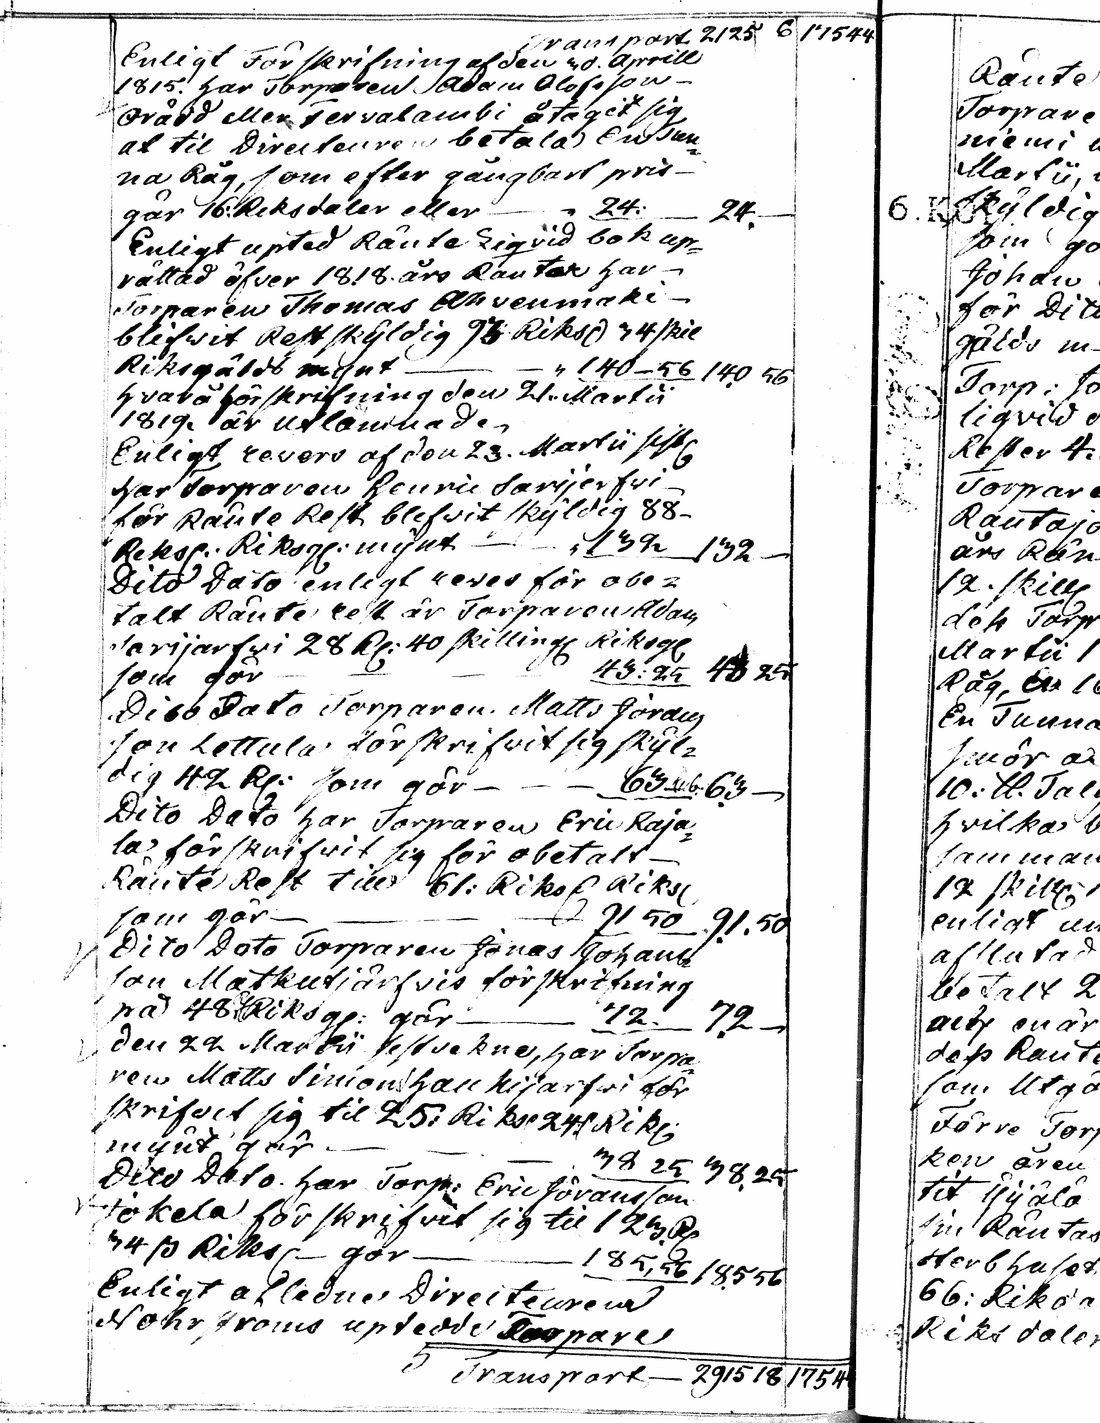 Transport 2125 6 17544
Enligt Förskrifning af den 20. Aprill
1815. har Torparen Adam Olofsson
eller Tervalambi åtagit sig
at til Directeuren betala En Tun-
na Råg, som efter gångbart pris
går 16: Reksdaler eller — " 24: — 24. —
Enligt upted Ränte Liqvid bok up-
rättad öfver 1818. års Räntor har
Torparen Thomas Ahvenmaki
blifwit Restskÿldig 93 Riksd 34 skil
Riksgälds mÿnt — " 140–56 140 56
hvarå förskrifning den 21. Martii
1819. är utlämnade
Enligt revers af den 23. Martii sistl
har Torparen Henric Sarijerfwi
för Ränte Rest blefwit skÿldig 88
Reksd: Riksg: mÿnt — " 132 — 132 —
Dito Dato enligt reves för obe-
talt Ränte rest är Torparen Adam
Sarijarfwi 28 Rd: 40 skilling Riksg
som gör — 43:25 43 25
Dito Dato Torparen Matts Görans
son Lettula förskrifvit sig skÿl-
dig 42 Rd: som gör — — — 63 — 63 —
Dito Dato har Torparen Eric Raja-
la förskrifvit sig för obetalt
Ränte Rest till 61: Riksd Riks
som gör — 91 50 91.50
Dito Dato Torparen Jonas Johans
son Matkutjärfvis förskrifning
på 48 Riksg: gör — 72. — 72 —
den 22 Martii har Torpa-
ren Matts Simonss Haukijarfwi för
skrifvit sig til 25: Riks 24 Riks
mÿnt gör — 38 25 38.25
Dito Dato har Torp: Eric Göransson
Jokela förskrifvit sig til 123 Rd
34 ß Riks — gör — 185,56 185 56
Enligt afledne Directeuren
Nohrströms uptedde Torpare
Transport — 2915 18 1754
Ränte
Torpare
niemi
Martii,
6. K
skÿldig
som
Johan
för Dito
gälds m
Torp: Jo
liqvid
Rester 4.
Torpare
Rantajä
års Rän
12. skill
deh Torp
Martii 1
Råg, 16
En Tunna
smör
10. ℔. Tal
hvilka b
samman
12 skill
enligt
aflutad
betalt 2
enär
dess Rante
som Utgö
Förre Torp
ken ären
tit Gjälä
sin Räntas
Sterbhuset
66: Riksd
Riksdaler